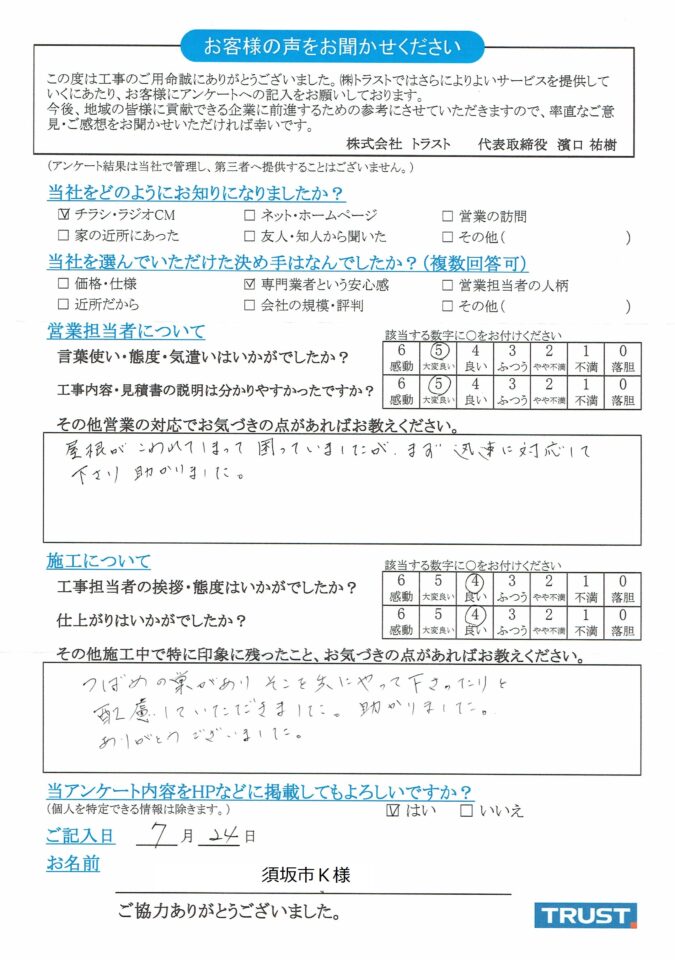 お客様の声をお聞かせください
この度は工事のご用命誠にありがとうございました。㈱トラストではさらによりよいサービスを提供して
いくにあたり、お客様にアンケートへの記入をお願いしております。
今後、地域の皆様に貢献できる企業に前進するための参考にさせていただきますので、率直なご意
見・ご感想をお聞かせいただければ幸いです。
株式会社 トラスト 代表取締役 濱口 祐樹
(アンケート結果は当社で管理し、第三者へ提供することはございません。)
当社をどのようにお知りになりましたか？
☑ チラシ・ラジオCM □ ネット・ホームページ □ 営業の訪問
□ 家の近所にあった □ 友人・知人から聞いた □ その他( )
当社を選んでいただけた決め手はなんでしたか？(複数回答可)
□ 価格・仕様 ☑ 専門業者という安心感 □ 営業担当者の人柄
□ 近所だから □ 会社の規模・評判 □ その他( )
営業担当者について
該当する数字に○をお付けください
言葉使い・態度・気遣いはいかがでしたか？
6 ⑤ 4 3 2 1 0
感動 大変良い 良い ふつう やや不満 不満 落胆
工事内容・見積書の説明は分かりやすかったですか？
6 ⑤ 4 3 2 1 0
感動 大変良い 良い ふつう やや不満 不満 落胆
その他営業の対応でお気づきの点があればお教えください。
屋根がこわれてしまって困っていましたが、まず迅速に対応して
下さり助かりました。
施工について
該当する数字に○をお付けください
工事担当者の挨拶・態度はいかがでしたか？
6 5 ④ 3 2 1 0
感動 大変良い 良い ふつう やや不満 不満 落胆
仕上がりはいかがでしたか？
6 5 ④ 3 2 1 0
感動 大変良い 良い ふつう やや不満 不満 落胆
その他施工中で特に印象に残ったこと、お気づきの点があればお教えください。
つばめの巣があり そこを先にやって下さったりと
配慮していただきました。助かりました。
ありがとうございました。
当アンケート内容をHPなどに掲載してもよろしいですか？
(個人を特定できる情報は除きます。)
☑ はい □ いいえ
ご記入日 7 月 24 日
お名前
須坂市K様
ご協力ありがとうございました。
TRUST.